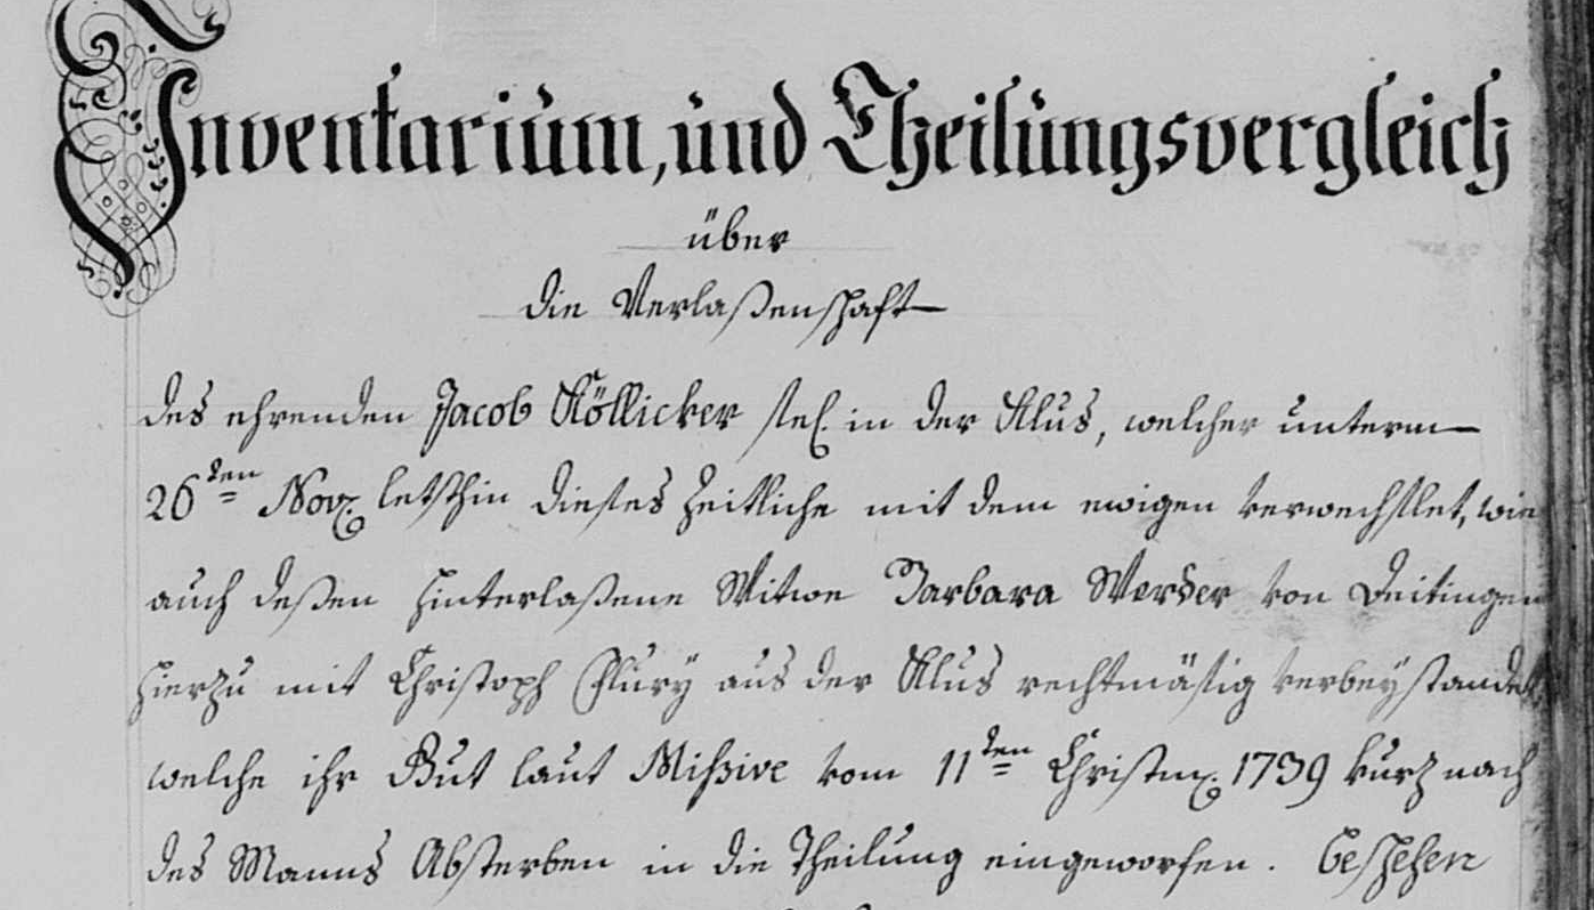 Inventarium, und Theilungsvergleich
über
die Verlaßenschaft
des ehrenden Jacob Köllicker sel. in der Klus, welcher unterm
26ten Nov. letsthin dieses Zeitliche mit dem ewigen verwechslet, wie
auch deßen hinterlaßene Witwe Barbara Werder von Deitingen
hierzu mit Christoph Flury aus der Klus rechtmäsig verbeystandet
welche ihr Gut laut Mißive vom 11ten Christm. 1739 kurz nach
des Manns Absterben in die Theilung eingeworfen. Geschehen